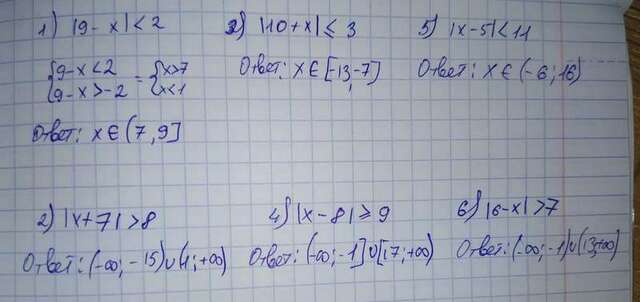 1) |9-x|<2
{9-x<2 = {x>7
{9-x>-2 {x<1
Ответ: x∈(7,9]
3) |10+x|≤3
Ответ: x∈[-13,-7]
5) |x-5|<11
Ответ: x∈(-6;16)
2) |x+7|>8
Ответ: (-∞;-15)∪(1;+∞)
4) |x-8|≥9
Ответ: (-∞;-1]∪[17;+∞)
6) |6-x|>7
Ответ: (-∞;-1)∪(13;+∞)